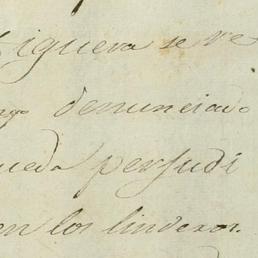 Higuera se re
ngo denunciado
ueda perjudi
en los linderos.